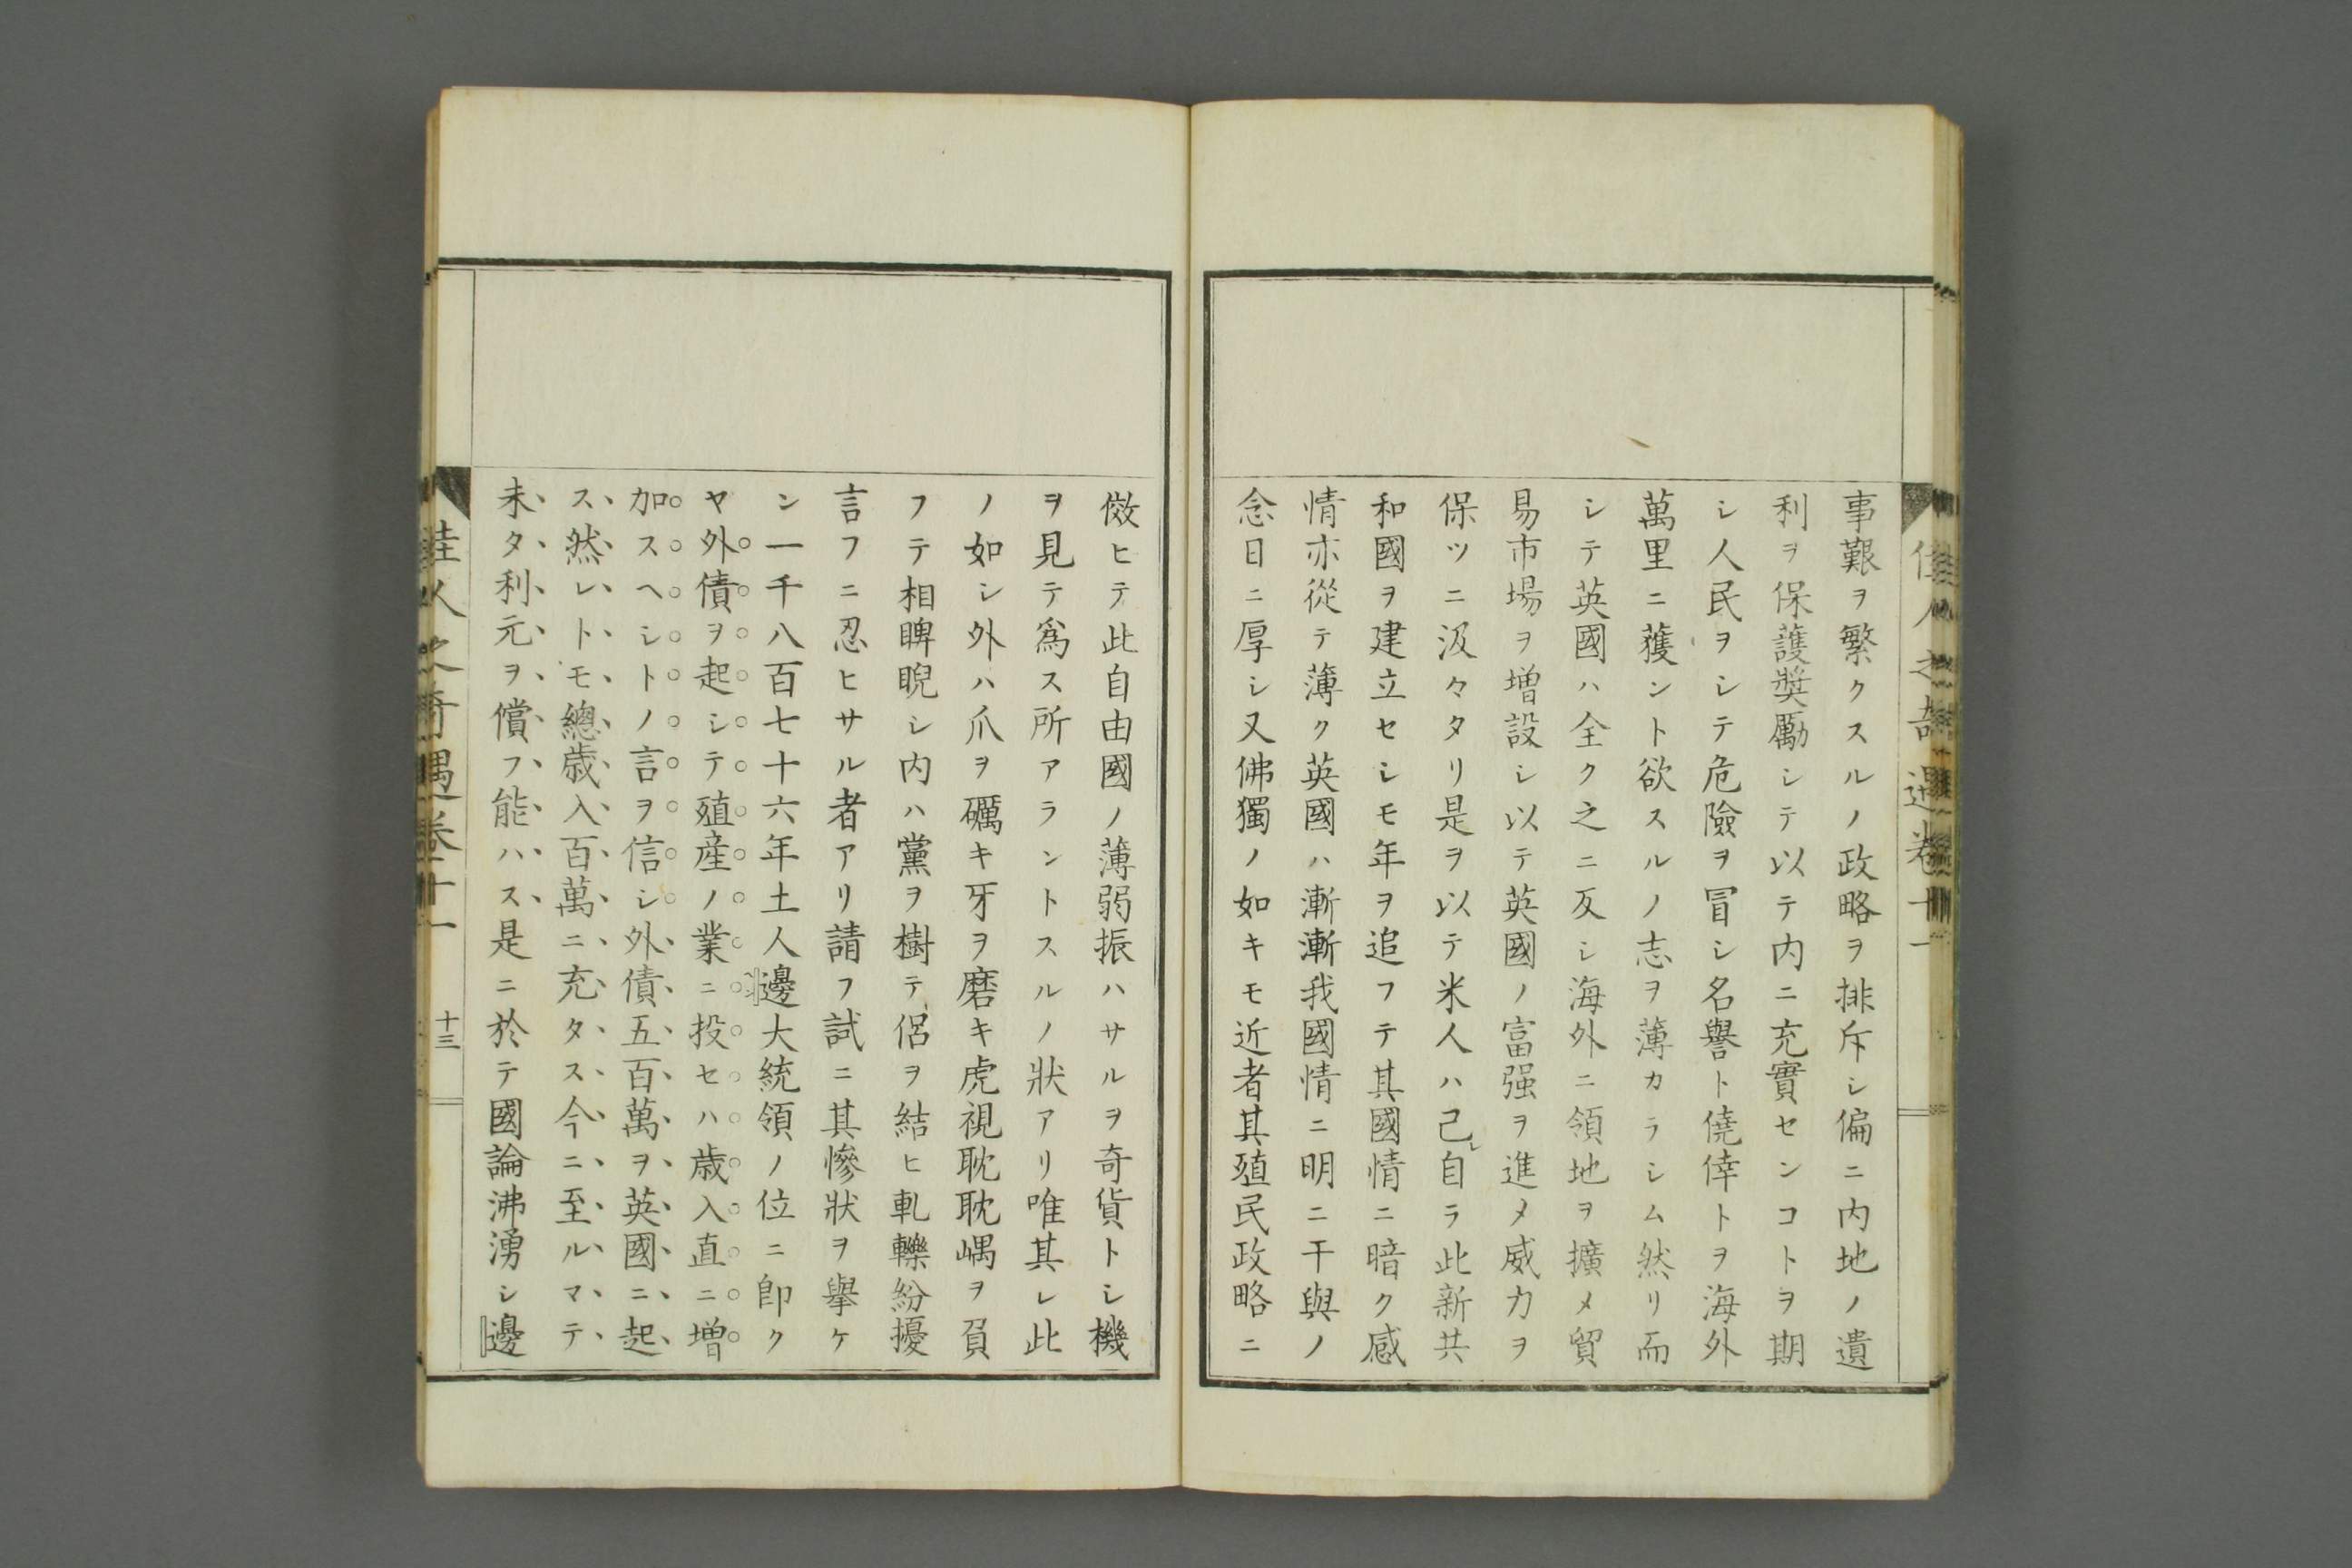 事艱ヲ繁クスルノ政略ヲ排斥シ偏ニ内地ノ遺
利ヲ保護奬勵シテ以テ内ニ充實センコトヲ期
シ人民ヲシテ危險ヲ冒シ名譽ト僥倖トヲ海外
萬里ニ獲ント欲スルノ志ヲ薄カラシム然リ而
シテ英國ハ全ク之ニ反シ海外ニ領地ヲ擴メ貿
易市場ヲ增設シ以テ英國ノ富强ヲ進メ威力ヲ
保ツニ汲々タリ是ヲ以テ米人ハ己レ自ラ此新共
和國ヲ建立セシモ年ヲ追フテ其國情ニ暗ク感
情亦從テ薄ク英國ハ漸漸我國情ニ明ニ干與ノ
念日ニ厚シ又佛獨ノ如キモ近者其殖民政略ニ
佳人之奇遇卷十一
傚ヒテ此自由國ノ薄弱振ハサルヲ奇貨トシ機
ヲ見テ爲ス所アラントスルノ狀アリ唯其レ此
ノ如シ外ハ爪ヲ礪キ牙ヲ磨キ虎視耽耽嵎ヲ負
フテ相睥睨シ内ハ黨ヲ樹テ侶ヲ結ヒ軋轢紛擾
言フニ忍ヒサル者アリ請フ試ニ其慘狀ヲ擧ケ
ン一千八百七十六年土人邊大統領ノ位ニ卽ク
ヤ外債ヲ起シテ殖産ノ業ニ投セハ歳入直ニ增
加スヘシトノ言ヲ信シ外債五百萬ヲ英國ニ起
ス然レトモ總歳入百萬ニ充タス今ニ至ルマテ
未タ利元ヲ償フ能ハス是ニ於テ國論沸湧シ邊
佳人之奇遇卷十一
十三